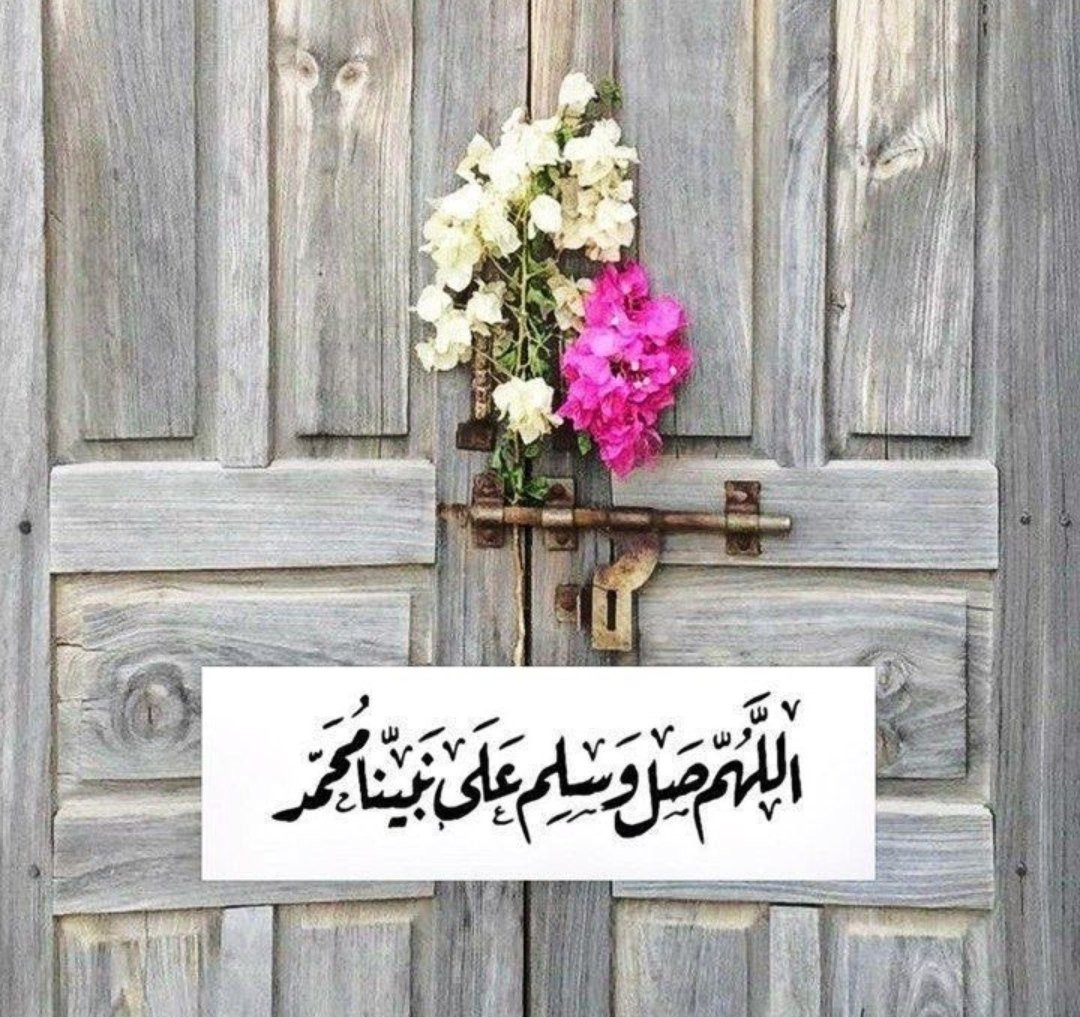 اللَّهُمّ صَل وَسَلِم عَلَى نَبيّنا مُحَمّد